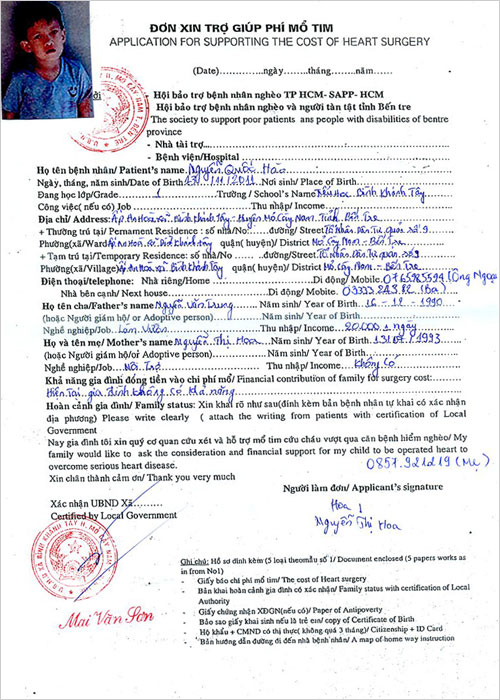 ĐƠN XIN TRỢ GIÚP PHÍ MỔ TIM
APPLICATION FOR SUPPORTING THE COST OF HEART SURGERY
(Date)...............ngày.......tháng........năm......
Hội bảo trợ bệnh nhân nghèo TP HCM- SAPP- HCM
Hội bảo trợ bệnh nhân nghèo và người tàn tật tỉnh Bến tre
The society to support poor patients ans people with disabilities of bentre
province
- Nhà tài trợ...
- Bệnh viên/Hospital
Họ tên bệnh nhân/ Patient's name Nguyễn Quốc Hào
Ngày, tháng, năm sinh/Date of Birth 11/2011 Nơi sinh/ Place of Birth
Đang học lớp/Grade 1 Trường / School's Name Tiểu học Bình Khánh Tây
Công việc( nếu có) Job Thu nhập/ Income
Địa chỉ/ Address: Ấp An Hoà xã Bình Khánh Tây - Huyện Mỏ Cày Nam Tỉnh Bến Tre
+ Thường trú tại/ Pernament Residence : số nhà/No đường/ Street Tổ Nhân Dân Tự quản số 9
Phường(xã/Ward) Ấp An Hoà xã Bình Khánh Tây quận( huyện)/ District Mỏ Cày Nam - Bến Tre
+ Tạm trú tại/Temporary Residence: số nhà/No đường/Street Tổ Nhân Dân Tự quản số 9
Phường(xã/Village) Ấp An Hoà xã Bình Khánh Tây quận( huyện)/ District Mỏ Cày Nam - Bến Tre
Điện thoại/telephone: Nhà riêng/Home Di động/ Mobile 0765985594 (Ông Ngoại
Nhà bên cạnh/ Next house Di động/ Mobile (Ba)
Họ tên cha/Father's name Nguyễn Văn Dung Năm sinh/ Year of Birth 16 - 12 - 1990
(hoặc Người giám hộ/ or Adoptive person) Năm sinh/ Year of Birth
Nghề nghiệp/Job Làm Mướn Thu nhập/ Income 20.000 1 ngày
Họ và tên mẹ/ Mother's name Nguyễn Thị Hoa Năm sinh/ Year of Birth 1993
(hoặc Người giám hộ/ or Adoptive person) Năm sinh/ Year of Birth
Nghề nghiệp/Job Nội Trợ Thu nhập/ Income Không Có
Khả năng gia đình đóng tiền vào chi phí mổ/ Financial contribution of family for surgery cost:
Hiện Tại gia đình không có khả năng
Hoàn cảnh gia đình/ Family status: Xin khai rõ như sau(đính kèm bản bệnh nhân tự khai có xác nhận
địa phương) Please write clearly ( attach the writing from patients with certification of Local
Government
Nay gia đình tôi xin quý cơ quan cứu xét và hỗ trợ mổ tim cứu cháu vượt qua căn bệnh hiểm nghèo/ My
family would like to ask the consideration and financial support for my child to be operated heart to
overcome serious heart disease.
0857.921219 (Mẹ)
Xin chân thành cảm ơn/ Thank you very much
Người làm đơn/ Applicant's signature
Xác nhận UBND Xã
Certified by Local Government
Hoa
Nguyễn Thị Hoa
Mai Văn Sơn
Ghi chú: Hồ sơ đính kèm (5 loại theo mẫu số 1/ Document enclosed (5 papers works as
in from No1)
- Giấy báo chi phí mổ tim/ The cost of Heart surgery
- Bản khai hoàn cảnh gia đình có xác nhận/ Family status with certification of Local
Authority
- Giấy chứng nhận XĐGN(nếu có)/ Paper of Antipoverty
- Bảo sao giấy khai sinh nếu là trẻ em/ copy of Certificate of Birth
- Hộ khẩu + CMND có thị thực( không quá 3 tháng)/ Citizenship + ID Card
- Bản hướng dẫn đường đi đến nhà bệnh nhân/ A map of home way instruction